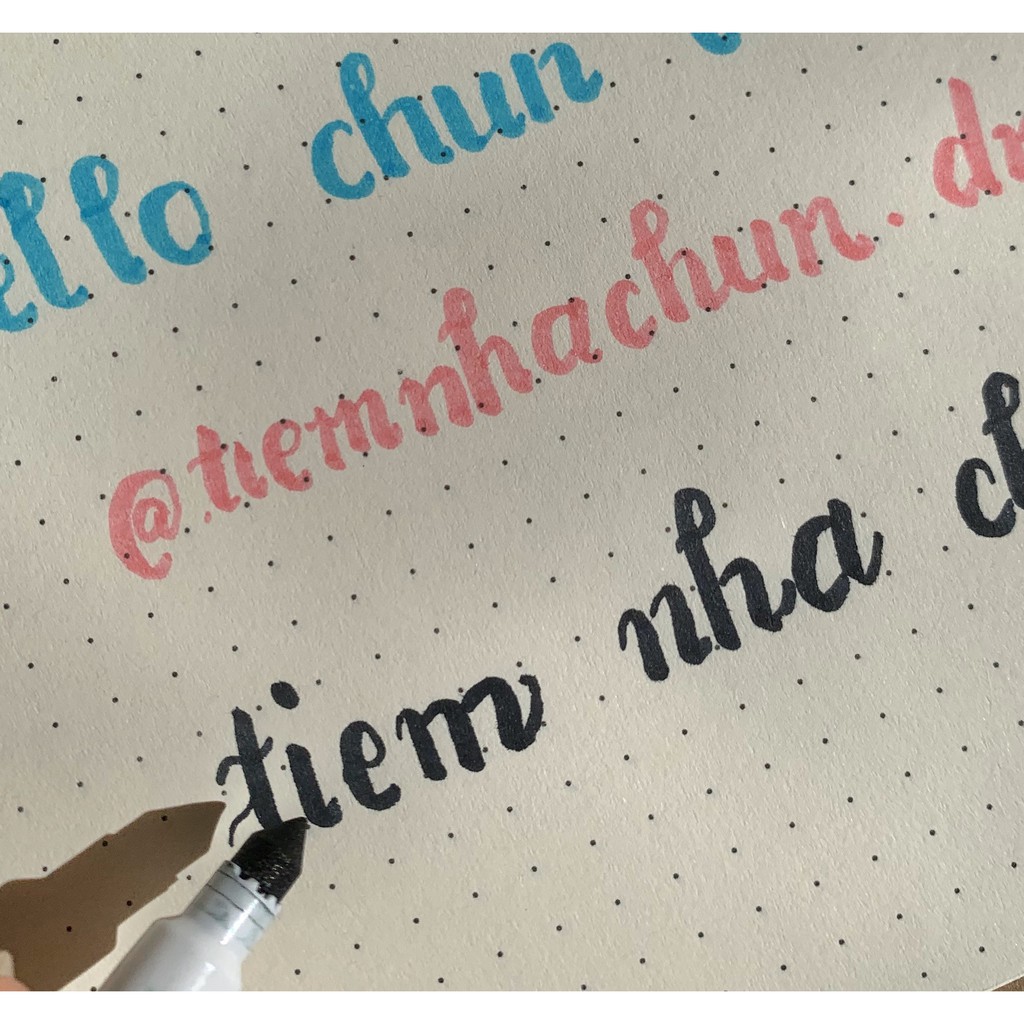 ello chun
@tiemnhachun.dr
tiem nha ch